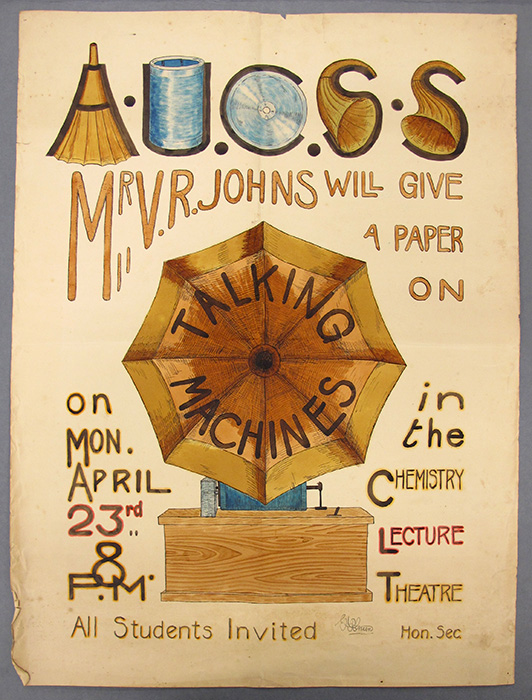 A.U.C.S.S
Mr V.R. JOHNS WILL GIVE
A PAPER
ON
TALKING
MACHINES
on
MON.
APRIL
23rd
8
P.M.
in
the
CHEMISTRY
LECTURE
THEATRE
All Students Invited
Hon. Sec.